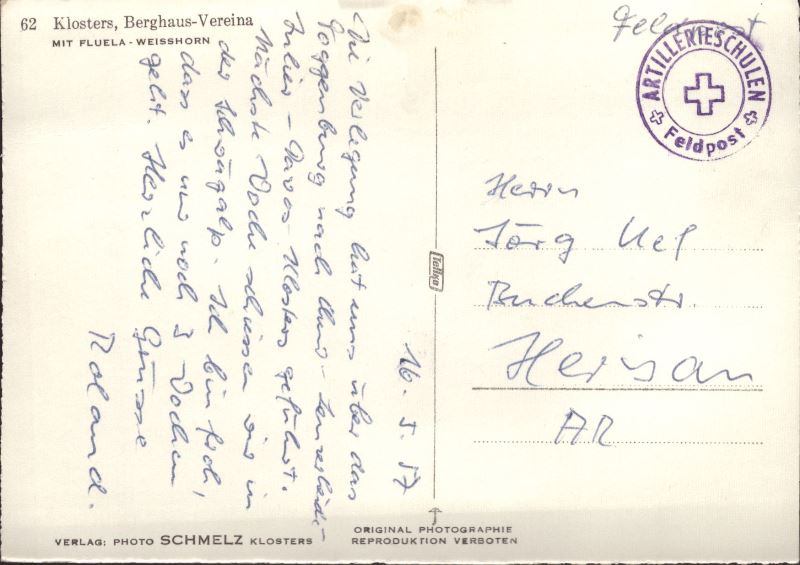 62 Klosters, Berghaus-Vereina
MIT FLUELA - WEISSHORN
Feldpost
ARTILLERIESCHULEN
Feldpost
16. 5. 57
Die Verlegung hat uns über das
Toggenburg nach Chur - Lenzerheide -
Julier - Davos - Klosters geführt.
Nächste Woche schiessen wir in
der Schwägalp. Ich bin froh,
dass es nur noch 3 Wochen
geht. Herzliche Grüsse
Roland.
Herrn
Jörg Nef
Buchenstr.
Herisau
AR
Tellko
VERLAG: PHOTO SCHMELZ KLOSTERS
ORIGINAL PHOTOGRAPHIE
REPRODUKTION VERBOTEN